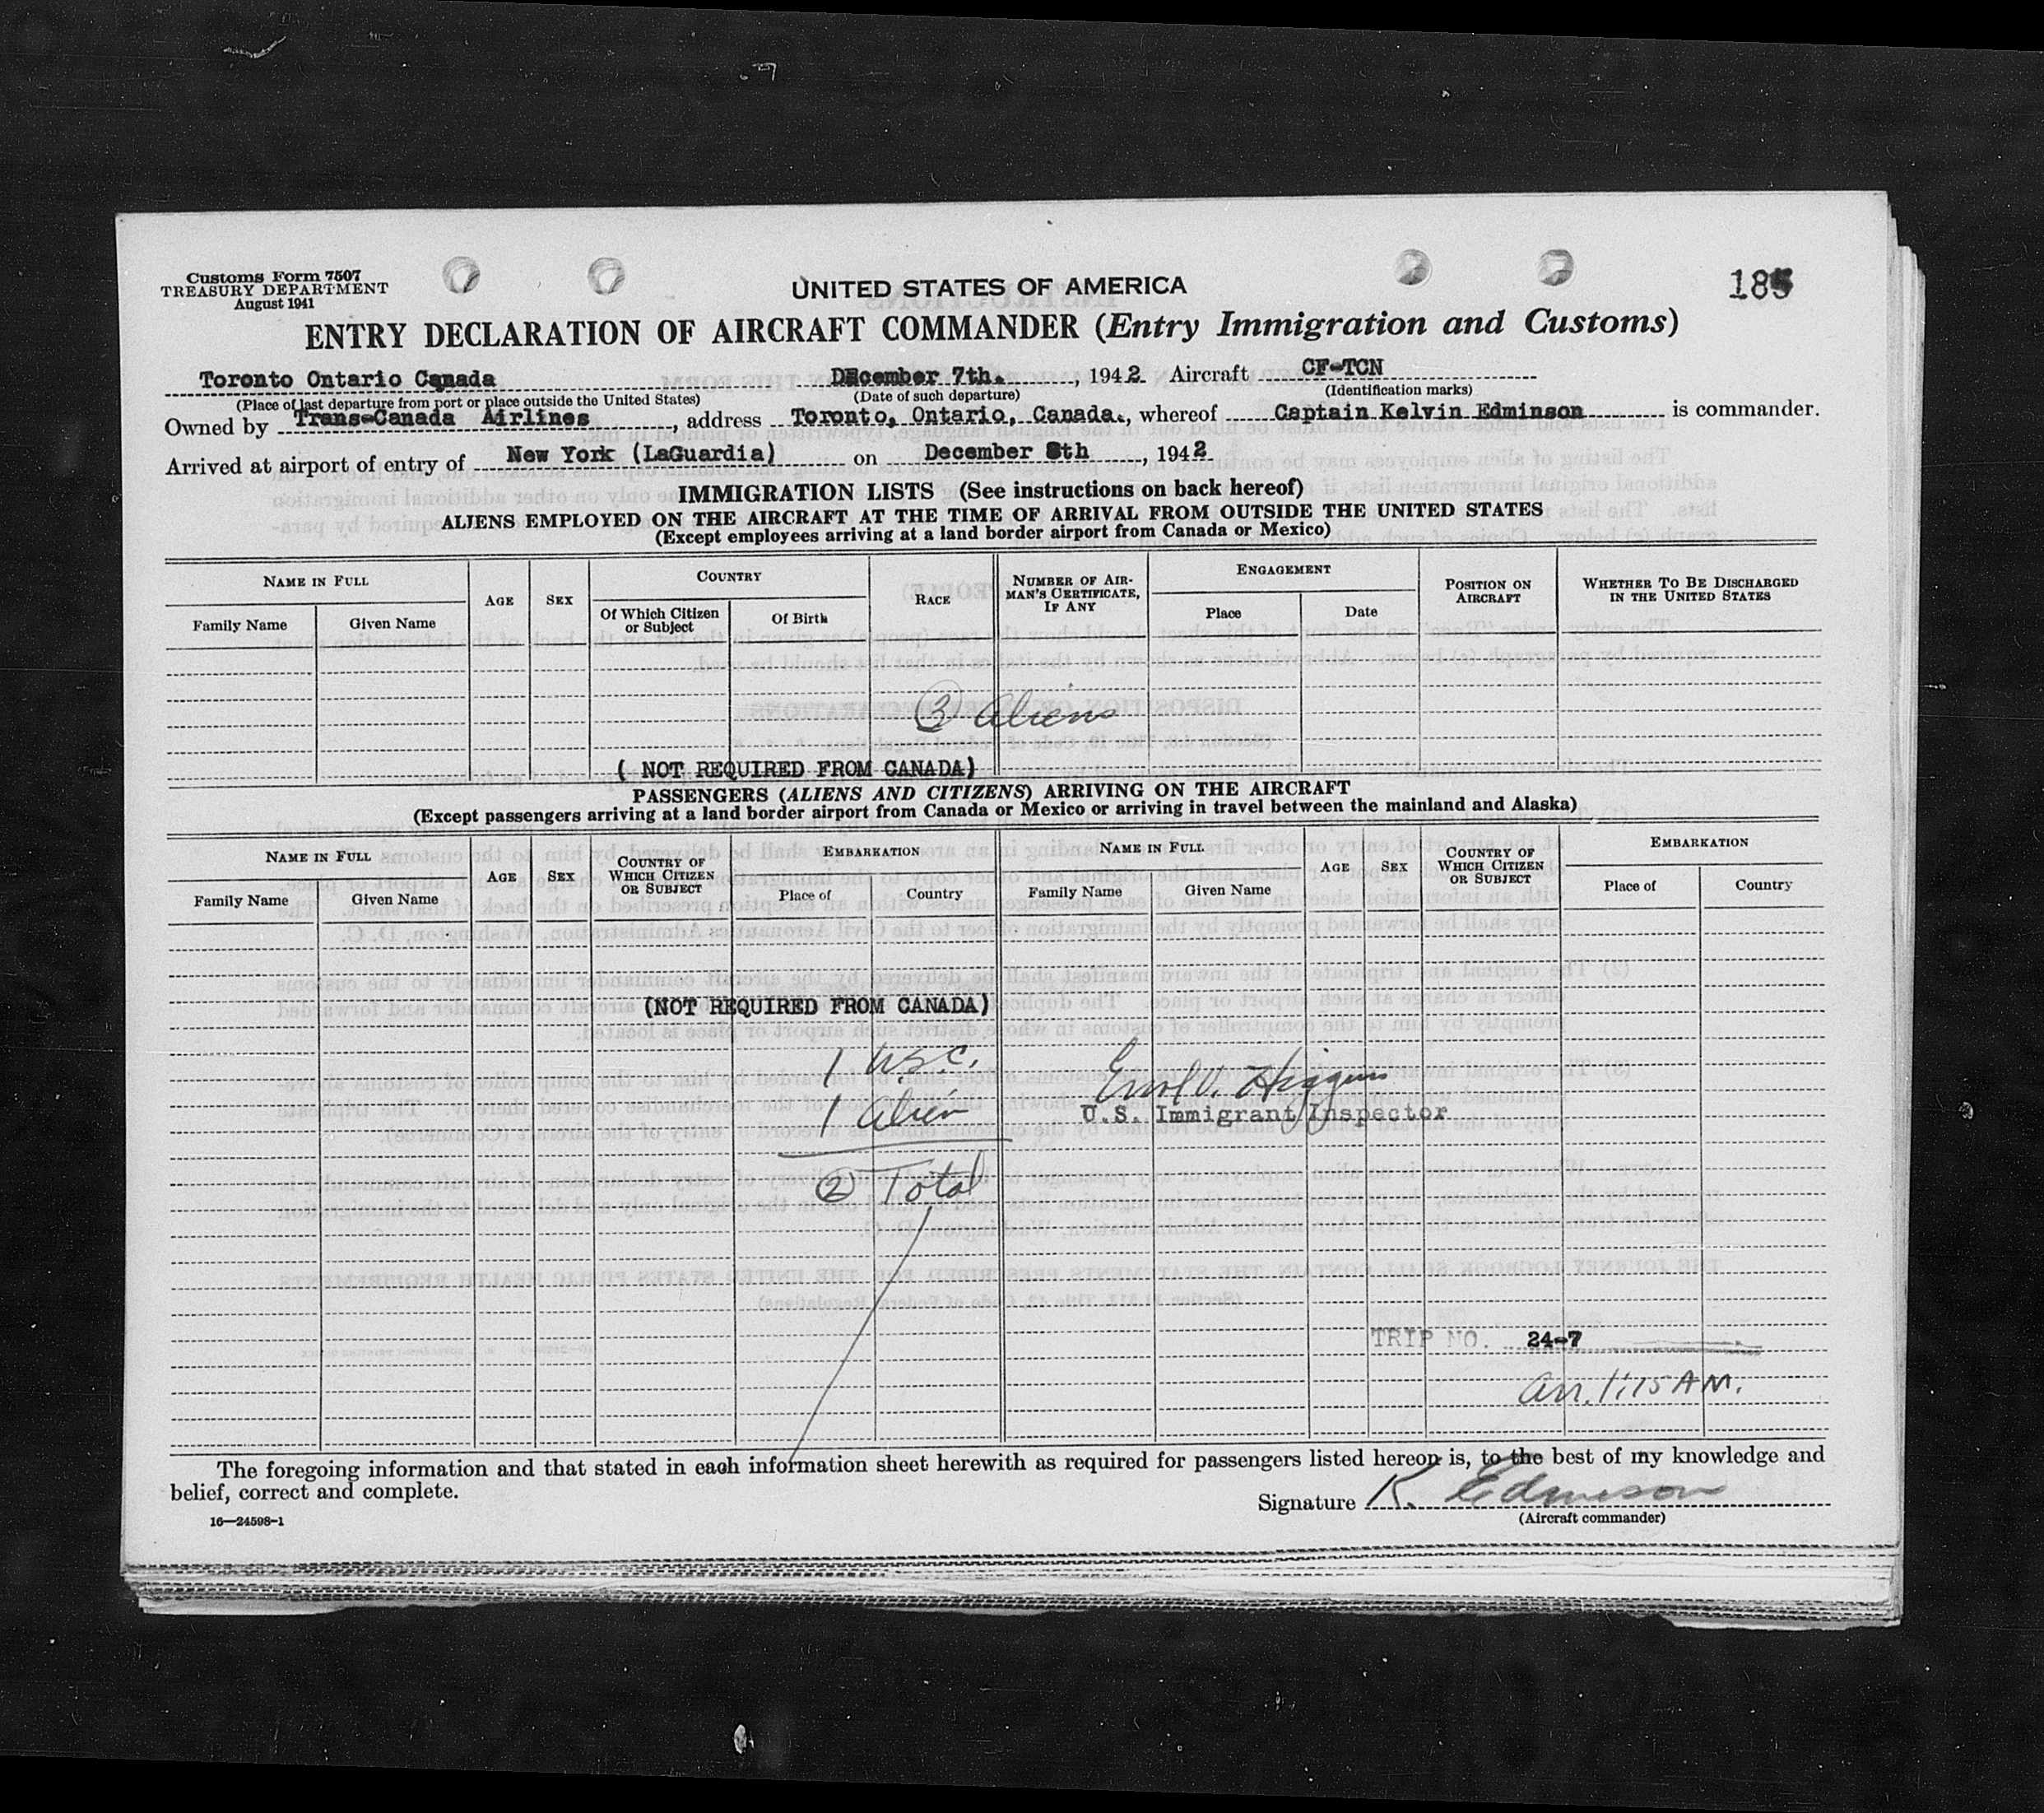 Customs Form 7507
TREASURY DEPARTMENT
August 1941
UNITED STATES OF AMERICA
185
ENTRY DECLARATION OF AIRCRAFT COMMANDER (Entry Immigration and Customs)
Toronto Ontario Canada December 7th. , 1942 Aircraft CF-TCN
(Place of last departure from port or place outside the United States) (Date of such departure) (Identification marks)
Owned by Trans-Canada Airlines , address Toronto, Ontario, Canada. , whereof Captain Kelvin Edminson is commander.
Arrived at airport of entry of New York (LaGuardia) on December 8th , 1942
IMMIGRATION LISTS (See instructions on back hereof)
ALIENS EMPLOYED ON THE AIRCRAFT AT THE TIME OF ARRIVAL FROM OUTSIDE THE UNITED STATES
(Except employees arriving at a land border airport from Canada or Mexico)
NAME IN FULL AGE SEX COUNTRY RACE NUMBER OF AIRMAN'S CERTIFICATE, IF ANY ENGAGEMENT POSITION ON AIRCRAFT WHETHER TO BE DISCHARGED IN THE UNITED STATES
Family Name Given Name Of Which Citizen or Subject Of Birth Place Date
3 Aliens
( NOT REQUIRED FROM CANADA)
PASSENGERS (ALIENS AND CITIZENS) ARRIVING ON THE AIRCRAFT
(Except passengers arriving at a land border airport from Canada or Mexico or arriving in travel between the mainland and Alaska)
NAME IN FULL AGE SEX COUNTRY OF WHICH CITIZEN OR SUBJECT EMBARKATION NAME IN FULL AGE SEX COUNTRY OF WHICH CITIZEN OR SUBJECT EMBARKATION
Family Name Given Name Place of Country Family Name Given Name Place of Country
(NOT REQUIRED FROM CANADA)
1 U.S.C.
Higgins
1 Alien
U.S. Immigrant Inspector
2 Total
TRIP NO. 24-7
arr. 1:15 AM.
The foregoing information and that stated in each information sheet herewith as required for passengers listed hereon is, to the best of my knowledge and
belief, correct and complete.
Signature K. Edmison
(Aircraft commander)
16—24598-1